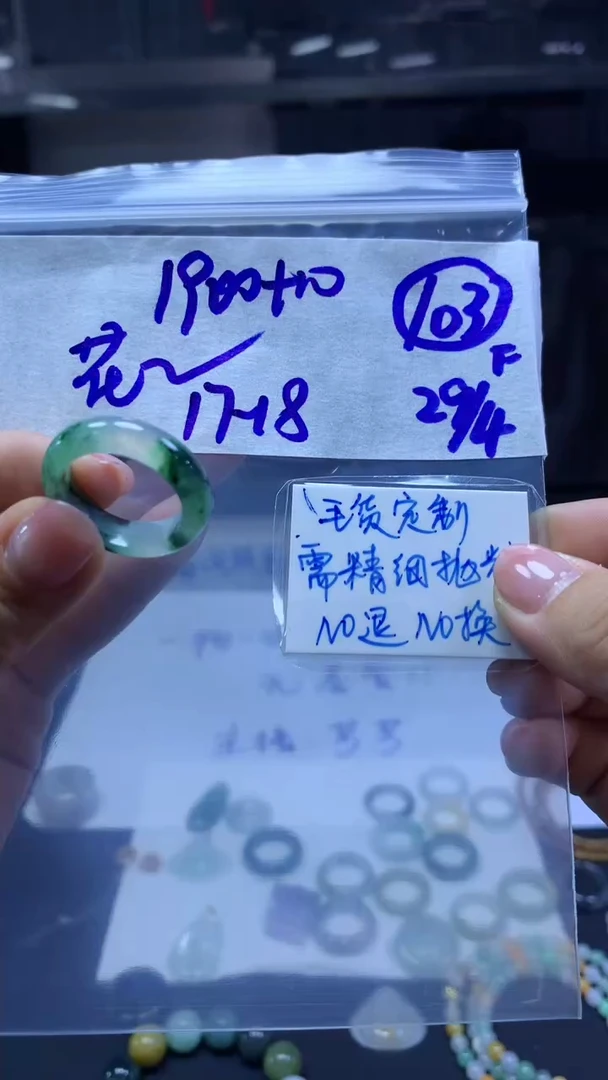 1900+10
103
F
花
17-18
29/4
毛货定制
需精细抛光
NO退 NO换